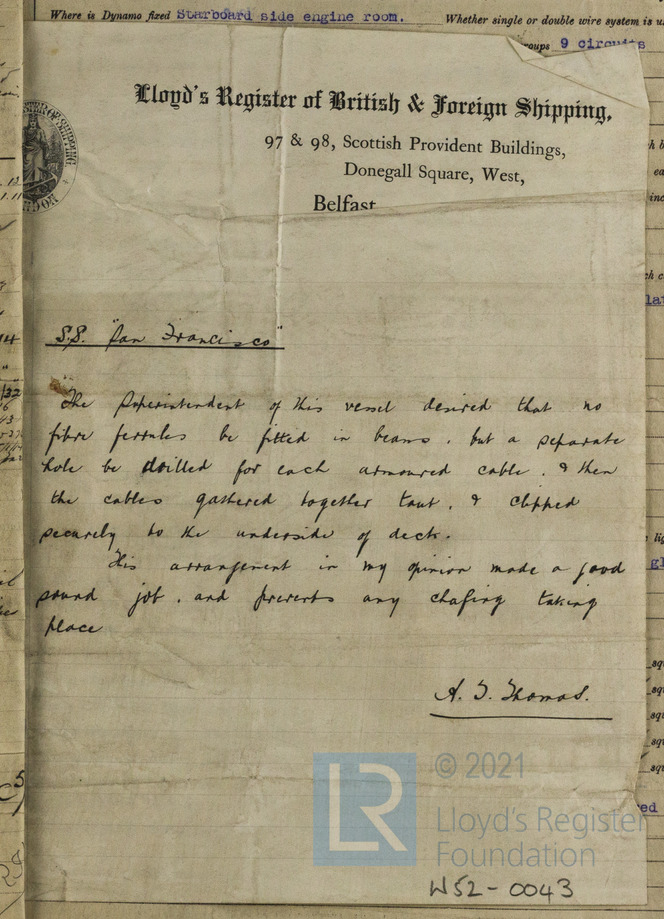 Where is Dynamo fixed Starboard side engine room. Whether single or double wire system is
9 circuits
Lloyd's Register of British & Foreign Shipping,
97 & 98, Scottish Provident Buildings,
Donegall Square, West,
Belfast
S.S. "San Francisco"
The Superintendent of this vessel desired that no
fibre ferrules be fitted in beams, but a separate
hole be drilled for each armoured cable, & then
the cables gathered together taut, & clipped
securely to the underside of deck.
This arrangement in my opinion made a good
sound job, and prevents any chafing taking
place
A. T. Thomas.
LR
© 2021
Lloyd's Register
Foundation
W52-0043